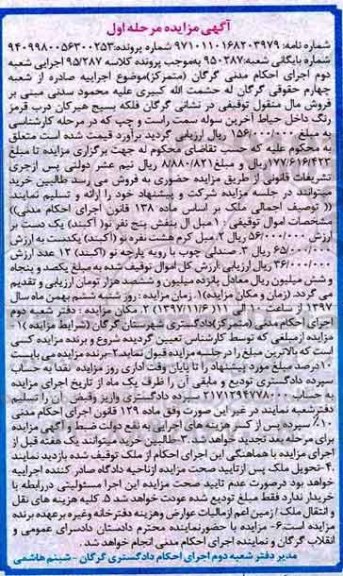 آگهی مزایده مرحله اول
شماره نامه: ۹۷۱۰۱۱۰۱۶۸۲۰۳۹۷۹ شماره پرونده: ۹۴۰۹۹۸۰۰۵۶۳۰۰۲۵۳
شماره بایگانی شعبه: ۹۵۰۲۸۷ به‌موجب پرونده کلاسه ۹۵/۲۸۷ اجرایی شعبه
دوم اجرای احکام مدنی گرگان (متمرکز)موضوع اجراییه صادره از شعبه
چهارم حقوقی گرگان له حشمت الله کبیری علیه محمود سدنی مبنی بر
فروش مال منقول توقیفی در نشانی گرگان فلکه بسیج هیرکان درب قرمز
رنگ داخل حیاط آخرین سوله سمت راست و چپ که در مرحله کارشناسی
به مبلغ ۱۵۶/۰۰۰/۰۰۰ ریال ارزیابی گردید برآورد قیمت شده است متعلق
به محکوم علیه که حسب تقاضای محکوم له جهت برگزاری مزایده تا مبلغ
۱۷۷/۶۱۶/۴۲۳ریال و مبلغ۸/۸۸۰/۸۲۱ ریال نیم عشر دولتی پس ازجری
تشریفات قانونی از طریق مزایده حضوری به فروش می رسد طالبین خرید
میتوانند در جلسه مزایده شرکت و پیشنهاد خود را ارائه و تسلیم نمایند.
(( توصیف اجمالی ملک بر اساس ماده ۱۳۸ قانون اجرای احکام مدنی))
مشخصات اموال توقیفی ۱. مبل ال بنفش پنج نفر نو( آکبند) یک دست بر
ارزش ۵۶/۰۰۰/۰۰۰ ریال ۲. مبل کرم هشت نفره نو (آکبند) یکدست به ارزش
۶۵/۰۰۰/۰۰۰ ریال ۳. صندلی چوب با رویه پارچه نو (آکبند) ۱۲ عدد ارزش
۳۶/۰۰۰/۰۰۰ ریال ارزیابی ارزش کل اموال توقیف شده به مبلغ یکصد و پنجاه
و شش میلیون ریال معادل پانزده میلیون و ششصد هزار تومان ارزیابی و تقدیم
می گردد. (زمان و مکان مزایده)۱. زمان مزایده : روز شنبه ششم بهمن ماه سال
۱۳۹۷ از ساعت ۱۰ الی ۱۱( ۱۳۹۷/۱۱/۶) ۲. مکان مزایده : دفتر شعبه دوم
اجرای احکام مدنی (متمرکز)دادگستری شهرستان گرگان (شرایط مزایده )۱-
مزایده ازمبلغی که توسط کارشناس تعیین گردیده شروع و برنده مزایده کسی
است که بالاترین مبلغ را درجلسه مزایده قبول نماید.۲-برنده مزایده می بایست
۱۰درصد مبلغ مورد پیشنهاد را تا پایان وقت اداری روز مزایده نقدا به حساب
سپرده دادگستری تودیع و مابقی آن را ظرف یک ماه از تاریخ اجرای مزایده
به حساب ۲۱۷۱۲۹۴۷۷۸۰۰۰ سپرده دادگستری واریز وفیش آن را تسلیم
دفترشعبه نمایند در غیر این صورت وفق ماده ۱۲۹ قانون اجرای احکام مدنی
۱۰٪ سپرده پس از کسر هزینه های اجرایی به نفع دولت ضبط و آگهی مزایده
برای مرحله بعد تجدید خواهد شد.۳-طالبین خرید میتوانند یک هفته قبل از
اجرای مزایده با هماهنگی این اجرای احکام از ملک توقیف شده بازدید نمایند
۴-تحویل ملک پس ازتایید صحت مزایده ازناحیه دادگاه صادر کننده اجراییه
خواهد بود درصورت عدم تایید صحت مزایده این اجرا مسئولیتی دررابطه با
خریدار ندارد فقط مبلغ تودیع شده عودت خواهد شد ۵. کلیه هزینه های نقل
و انتقال ملک / زمین اعم ازمالیات عوارض وهزینه دفترخانه وغیره برعهده برنده
مزایده است.۶- مزایده با حضورنماینده محترم دادستان دادسرای عمومی و
انقلاب گرگان و نماینده اجرای احکام مدنی انجام خواهد شد.
مدیر دفتر شعبه دوم اجرای احکام دادگستری گرگان -شبنم هاشمی